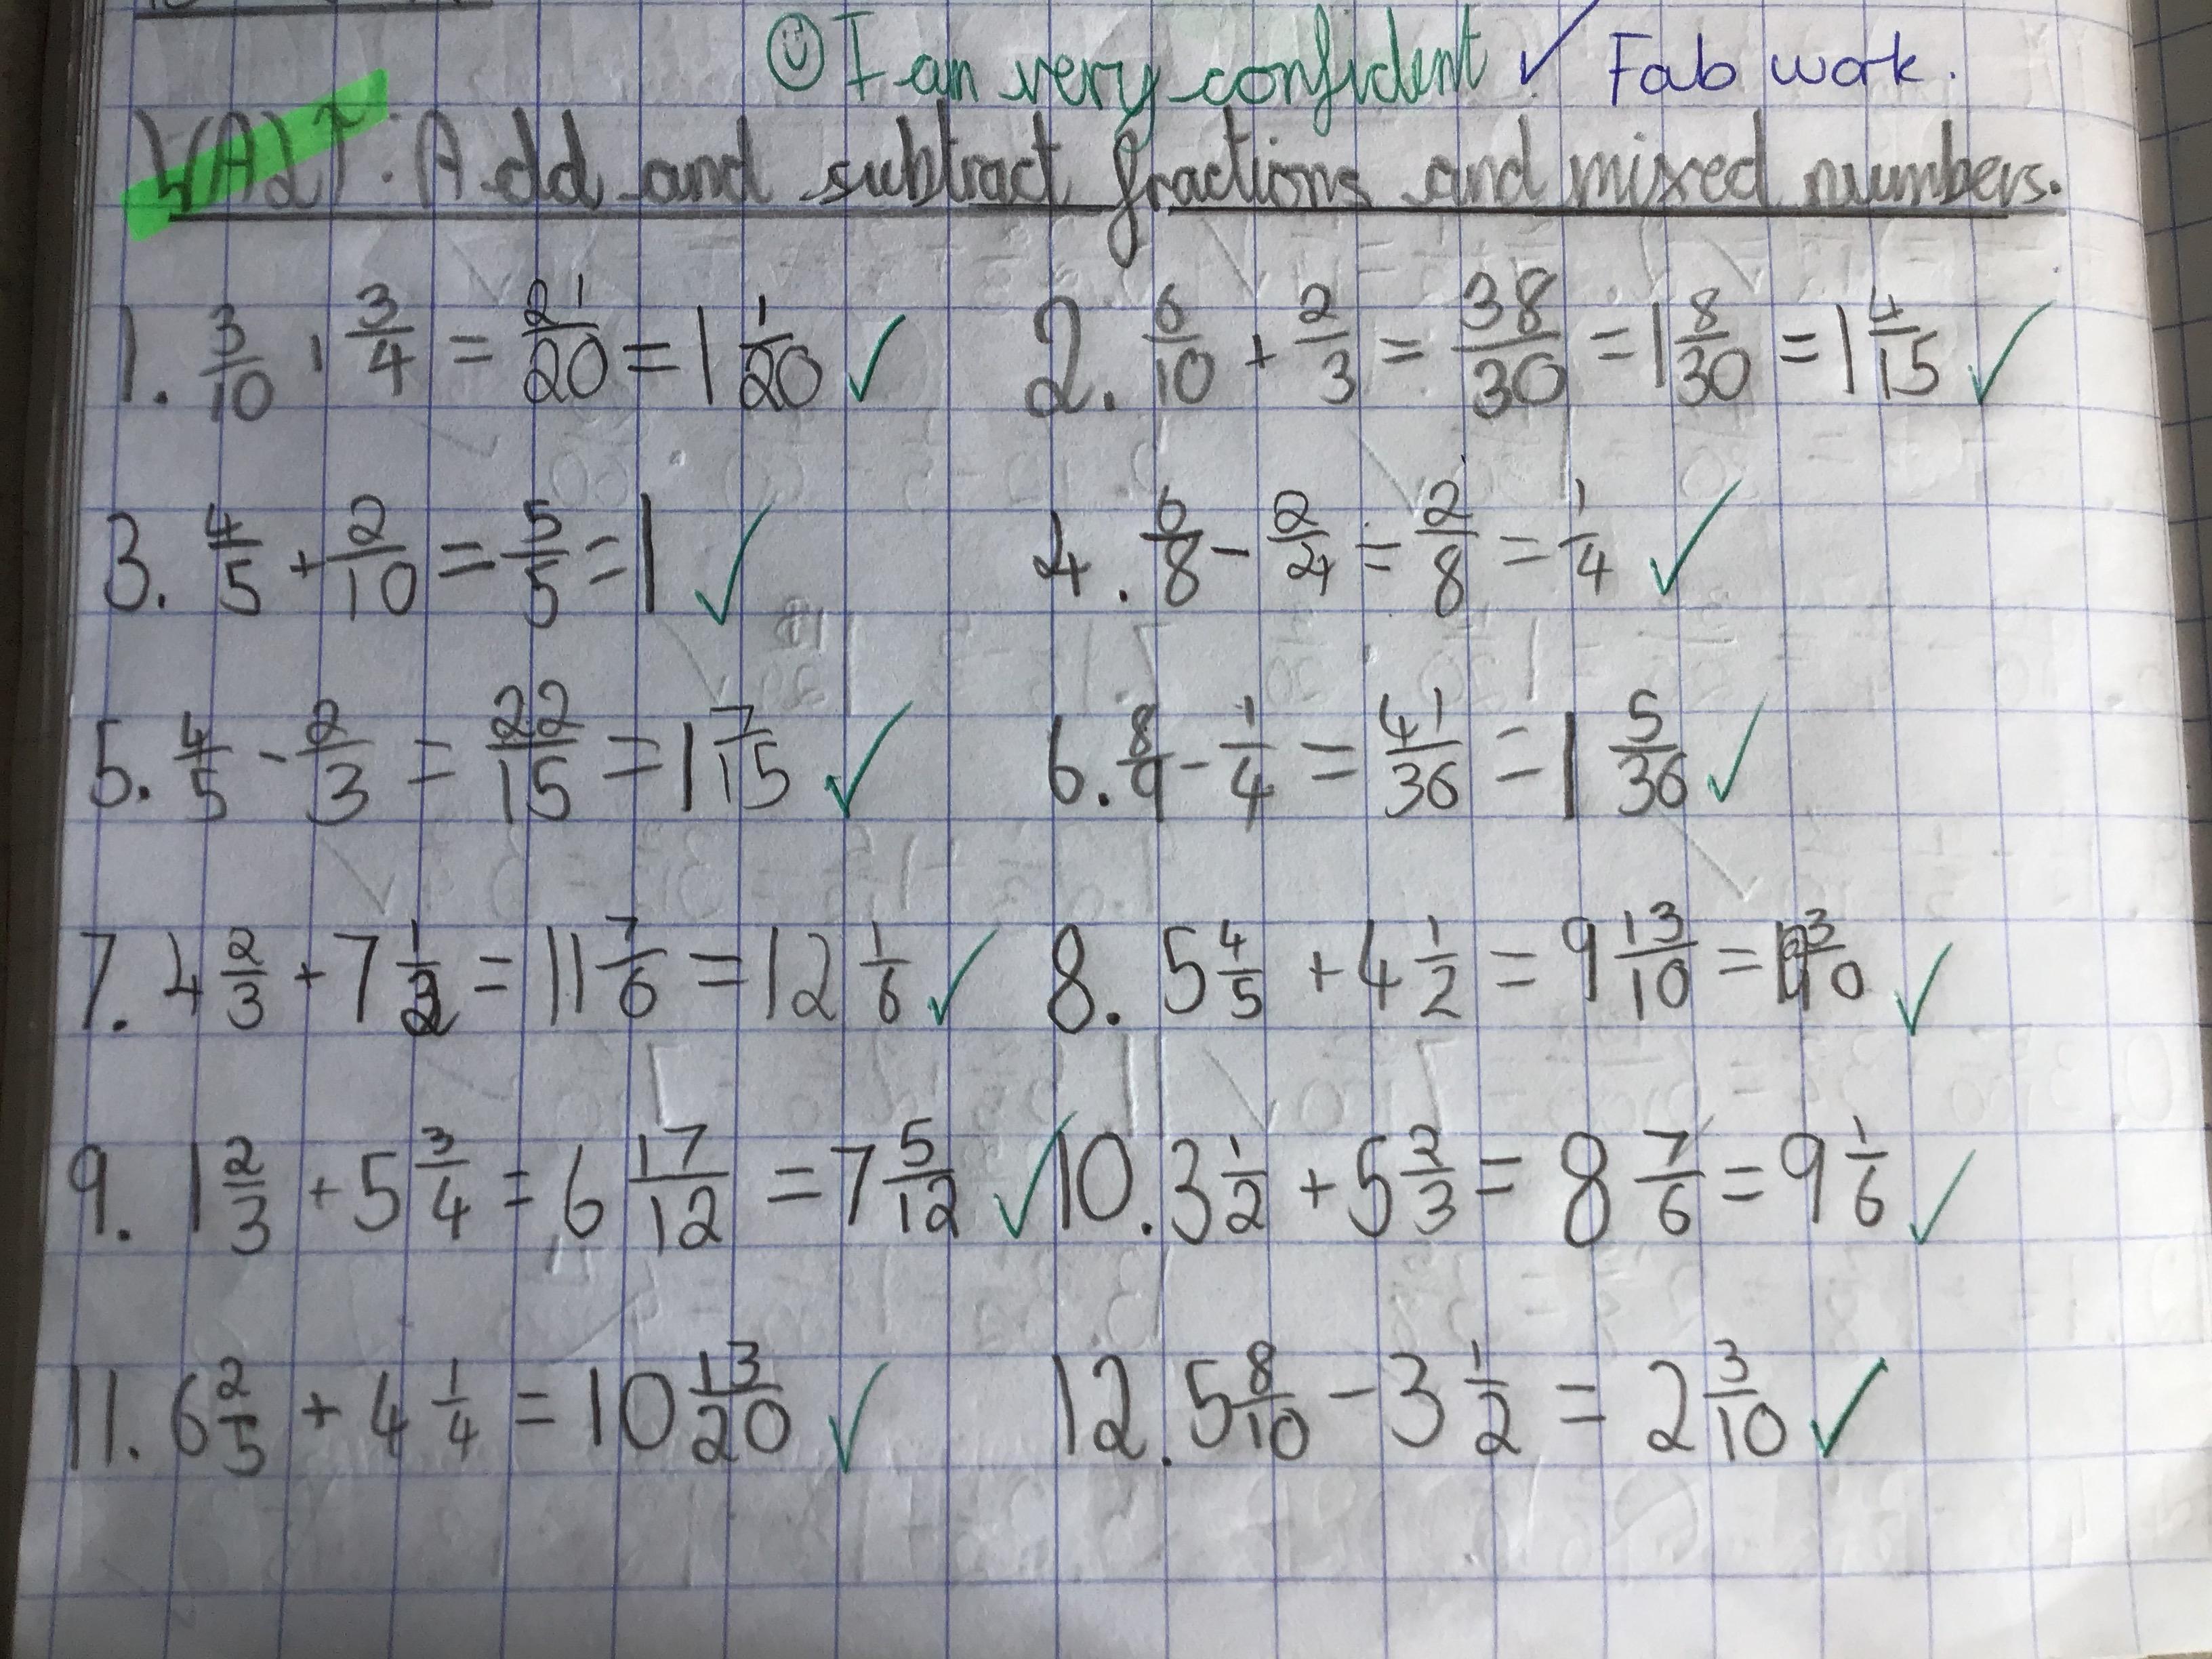 ☺ I am very confident ✓ Fab work.
WALT: Add and subtract fractions and mixed numbers.
1. 3/10 + 3/4 = 21/20 = 1 1/20 ✓ 2. 6/10 + 2/3 = 38/30 = 1 8/30 = 1 4/15 ✓
3. 4/5 + 2/10 = 5/5 = 1 ✓ 4. 6/8 - 2/4 = 2/8 = 1/4 ✓
5. 4/5 - 2/3 = 22/15 = 1 7/15 ✓ 6. 8/9 - 1/4 = 41/36 = 1 5/36 ✓
7. 4 2/3 + 7 1/2 = 11 7/6 = 12 1/6 ✓ 8. 5 4/5 + 4 1/2 = 9 13/10 = 10 3/10 ✓
9. 1 2/3 + 5 3/4 = 6 17/12 = 7 5/12 ✓ 10. 3 1/2 + 5 2/3 = 8 7/6 = 9 1/6 ✓
11. 6 2/5 + 4 1/4 = 10 13/20 ✓ 12. 5 8/10 - 3 1/2 = 2 3/10 ✓